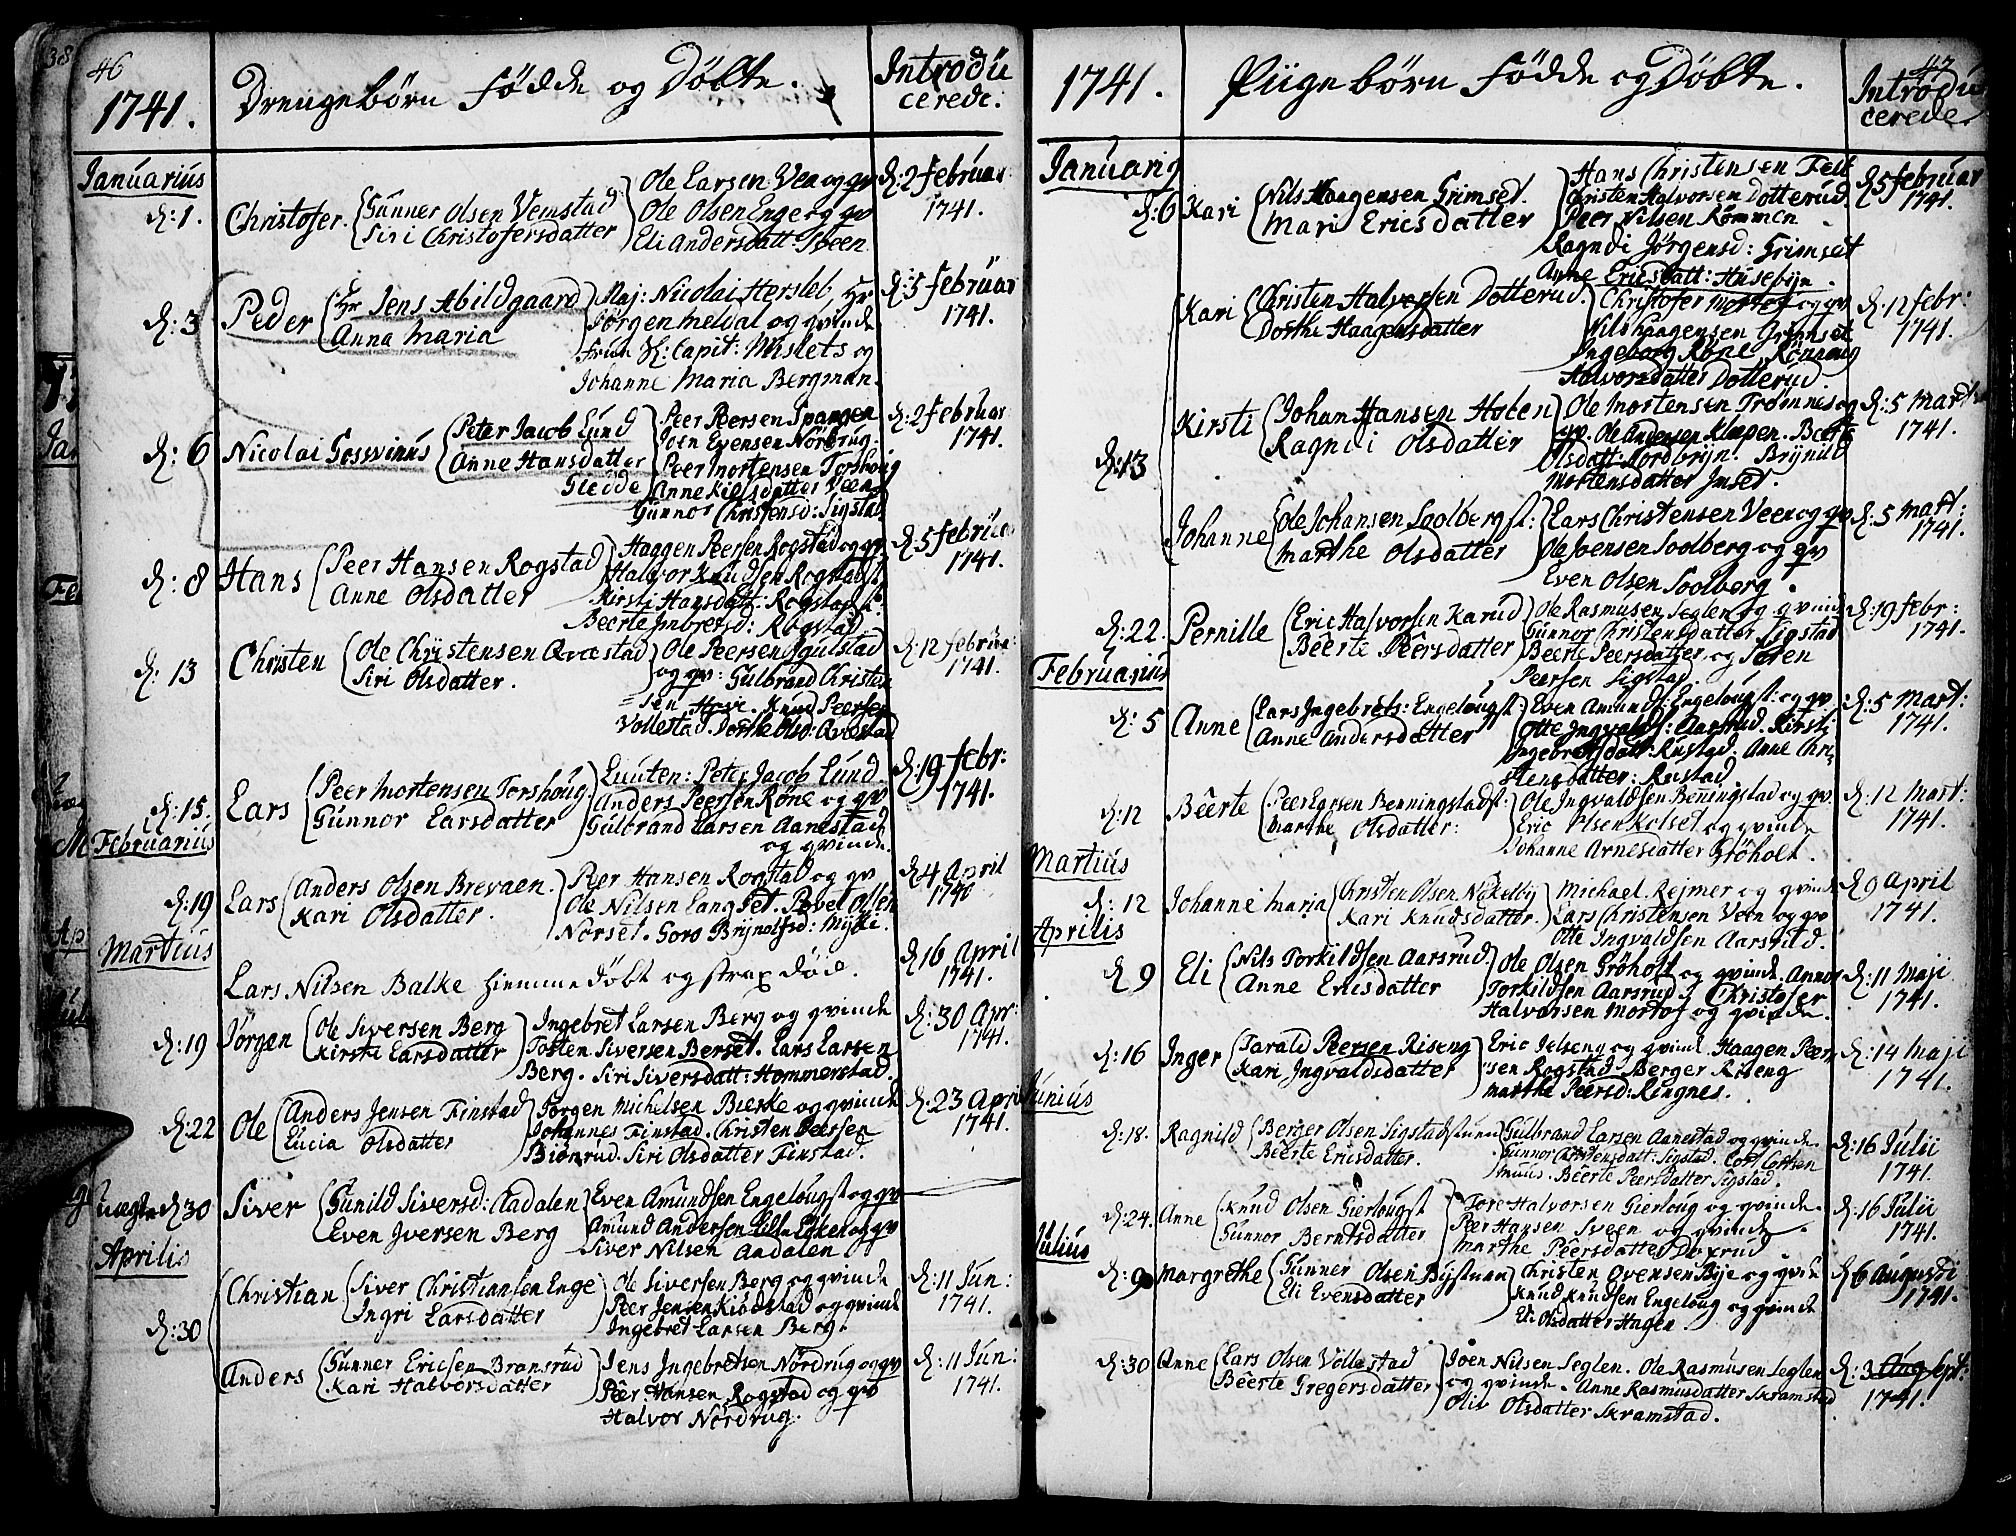 46
1741.
Drengebörn Födde og Döbte.
Introdu
cerede:
Januarius
d: 1.
Christofer
Gunner Olsen Vemstad
Siri Christofersdatter
Ole Larsen Veen og qv
Ole Olsen Enge og qv
Eli Andersdatt: Sveen
d: 2 Februar:
1741.
d: 3
Peder
Hr Jens Abildgaard
Anna Maria
Maj: Nicolai Hersleb, Hr
Jörgen Meldal og qvinde
Frue Capit: og
Johanne Maria Bergman.
d: 5 Februar
1741.
d: 6
Nicolai Gossvinus
Peter Jacob Lund
Anne Hansdatter
Peer Peersen Spangen
Joen Evensen Nordrug.
Peer Mortensen Torshoug
Anne Nielsdatter Veen
Gunnor Christensd: Sigstad
d: 2 Februar
1741.
d: 8
Hans
Peer Hansen Rogstad
Anne Olsdatter
Haagen Peersen Rogstad og qv
Halvor Knudsen Rogstad
Kirsti Hansdatt: Rogstad
Beerte Imbretsd: Rogstad
d: 5 Februa
1741.
d: 13
Christen
Ole Christensen Qvæstad
Siri Olsdatter.
Ole Peersen Igulstad
og qv: Gulbrand Christen
sen Hove. Knud Peersen
Vollestad. Dorthe Olsd: Qvæstad
d: 12 Februa:
1741.
d: 15.
Lars
Peer Mortensen Torshoug
Gunnor Larsdatter
Luuten: Peter Jacob Lund
Anders Peersen Röne og qv
Gulbrand Larsen Aanestad
og qvinde.
d: 19 febr:
1741.
Februarius
d: 19
Lars
Anders Olsen Brevaen.
Kari Olsdatter.
Peer Hansen Rogstad og qv
Ole Nilsen Langset. Povel Olsen
Norset. Goro Brynolfsd: Mykle.
d 4 April
Martius
Lars Nilsen Balke hiemme döbt og strax döde.
d 16 April
1741.
d: 19
Jörgen
Ole Siversen Berg
Kirsti Larsdatter
Ingebret Larsen Berg og qvinde
Tosten Siversen Berset. Lars Larsen
Berg. Siri Siversdatt: Hommerstad.
d: 30 Apr:
1741.
d: 22
Ole
Anders Jensen Finstad
Lucia Olsdatter
Jörgen Michelsen Bierke og qvinde
Johannes Finstad. Christen Peersen
Biönrud. Siri Olsdatter Finstad.
d: 23 April
1741.
d 30
Siver
Gunild Siversd: Aadalen
Even Iversen Berg
Even Amundsen Engelougst og qv
Amund Andersen Lille Löken og qv
Siver Nilsen Aadalen
Aprilis
d: 30
Christian
Siver Christiansen Enge
Ingri Larsdatter
Ole Siversen Berg og qvinde
Peer Jensen Kiödstad og qvinde
Ingebret Larsen Berg.
d: 11 Jun:
1741.
Anders
Gunner Ericsen Bransrud
Kari Halvorsdatter
Jens Ingebretsen Nordrug og qv
Peer Hansen Rogstad og qv
Halvor Nordrug.
d: 11 Jun:
1741.
47
1741.
Piigebörn Födde og Döbte.
Introdu
cerede
Januarius
d: 6
Kari
Nils Haagensen Grimset.
Mari Ericsdatter
Hans Christensen Felt
Christen Halvorsen Dotterud
Peer Nilsen Römmen
Ragndi Jörgensd: Grimset
Anne Ericsdatt: Huseby.
d 5 februar
1741.
Kari
Christen Halvorsen Dotterud.
Dorthe Haagensdatter
Christofer Mortof og qv
Nils Haagensen Grimset
Ingeborg Röne, Rönnoug
Halvorsdatter Dotterud.
d: 12 febr:
1741.
d: 13
Kirsti
Johan Hansen Hoten
Ragndi Olsdatter
Ole Mortensen Trömnes og
qv. Ole Andersen Klæpen. Beerte
Olsdatt: Nordbryn. Brynild
Mortensdatter Imset.
d: 5 Mart
1741.
Johanne
Ole Johansen Soolbergst:
Marthe Olsdatter
Lars Christensen Veen og qv
Ole Joensen Soolberg og qv
Even Olsen Soolberg.
d: 5 Mart:
1741.
d: 22.
Pernille
Eric Halvorsen Karud
Beerte Peersdatter
Ole Rasmusen Seglen og qvinde
Gunnor Christensdatter Sigstad
Beerte Peersdatter og Soren
Peersen Sigstad.
d: 19 febr:
1741.
Februarius
d: 5
Anne
Lars Ingebrets: Engelougst
Anne Andersdatter
Even Amunds: Engelougst: og qv
Otte Ingvalds: Aasrud. Kirsti
Ingebretsdatt: Rustad. Anne Chri-
stensdatter: Rustad
d: 5 Mart:
1741.
d: 12
Beerte
Peer Larsen Berningstadst:
Marthe Olsdatter:
Ole Ingvaldsen Benningstad og qv.
Eric Olsen Kolset og qvinde
Johanne Arnesdatter Gröholt.
d: 12 Mart:
1741.
Martius
d: 12
Johanne Maria
Christen Olsen Nökelby
Kari Knudsdatter.
Michael Rejmer og qvinde
Lars Christensen Veen og qv
Otte Ingvaldsen Aarsrud.
d 9 April
1741.
Aprilis
d 9
Eli
Nils Torkildsen Aarsrud
Anne Ericsdatter
Ole Olsen Gröholt og qvinde. Anne
Torkildsen Aarsrud. Christofer
Halvorsen Mortof og qvinde.
d: 11 Maji
1741.
d: 16
Inger
Tarald Peersen Riseng
Kari Ingvaldsdatter
Eric Jelseng og qvinde Haagen Peer-
sen Rogstad. Berger Riseng
Marthe Peersd: Rengnes.
d: 14 Maji
1741.
Junius
d: 18.
Ragnild
Berger Olsen Sigstadstuen
Beerte Ericsdatter.
Gulbrand Larsen Aanestad og qvinde.
Gunnor Christensdatt: Sigstad.
Muus. Beerte Peersdatter Sigstad.
d: 16 Julii
1741.
d: 24.
Anne
Knud Olsen Gierlougst
Gunnor Berntsdatter
Tore Halvorsen Gierloug og qvinde
Peer Hansen Sveen og qvinde
Marthe Peersdatter Doxrud
d: 16 Julii
1741.
Julius
d: 9
Margrethe
Gunner Olsen Byestuen
Eli Evensdatter
Christen Evensen Bye og qvinde
Knud Knudsen Engeloug og qvinde
Eli Olsdatter Hagen.
d 6 Augusti
1741.
d: 30
Anne
Lars Olsen Vollestad
Beerte Gregersdatter
Joen Nilsen Seglen. Ole Rasmusen Seglen
og qvinde. Anne Rasmusdatter Skramstad
Oliv Olsdatter Skramstad.
d: 3 Aug Sept:
1741.